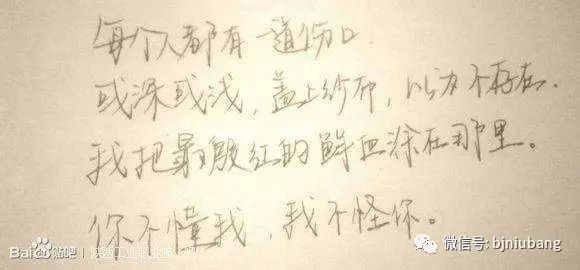 每个人都有一道伤口
或深或浅，盖上纱布，以为不存在.
我把最殷红的鲜血涂在那里。
你不懂我，我不怪你。
Baidu贴吧
微信号: bjniubang